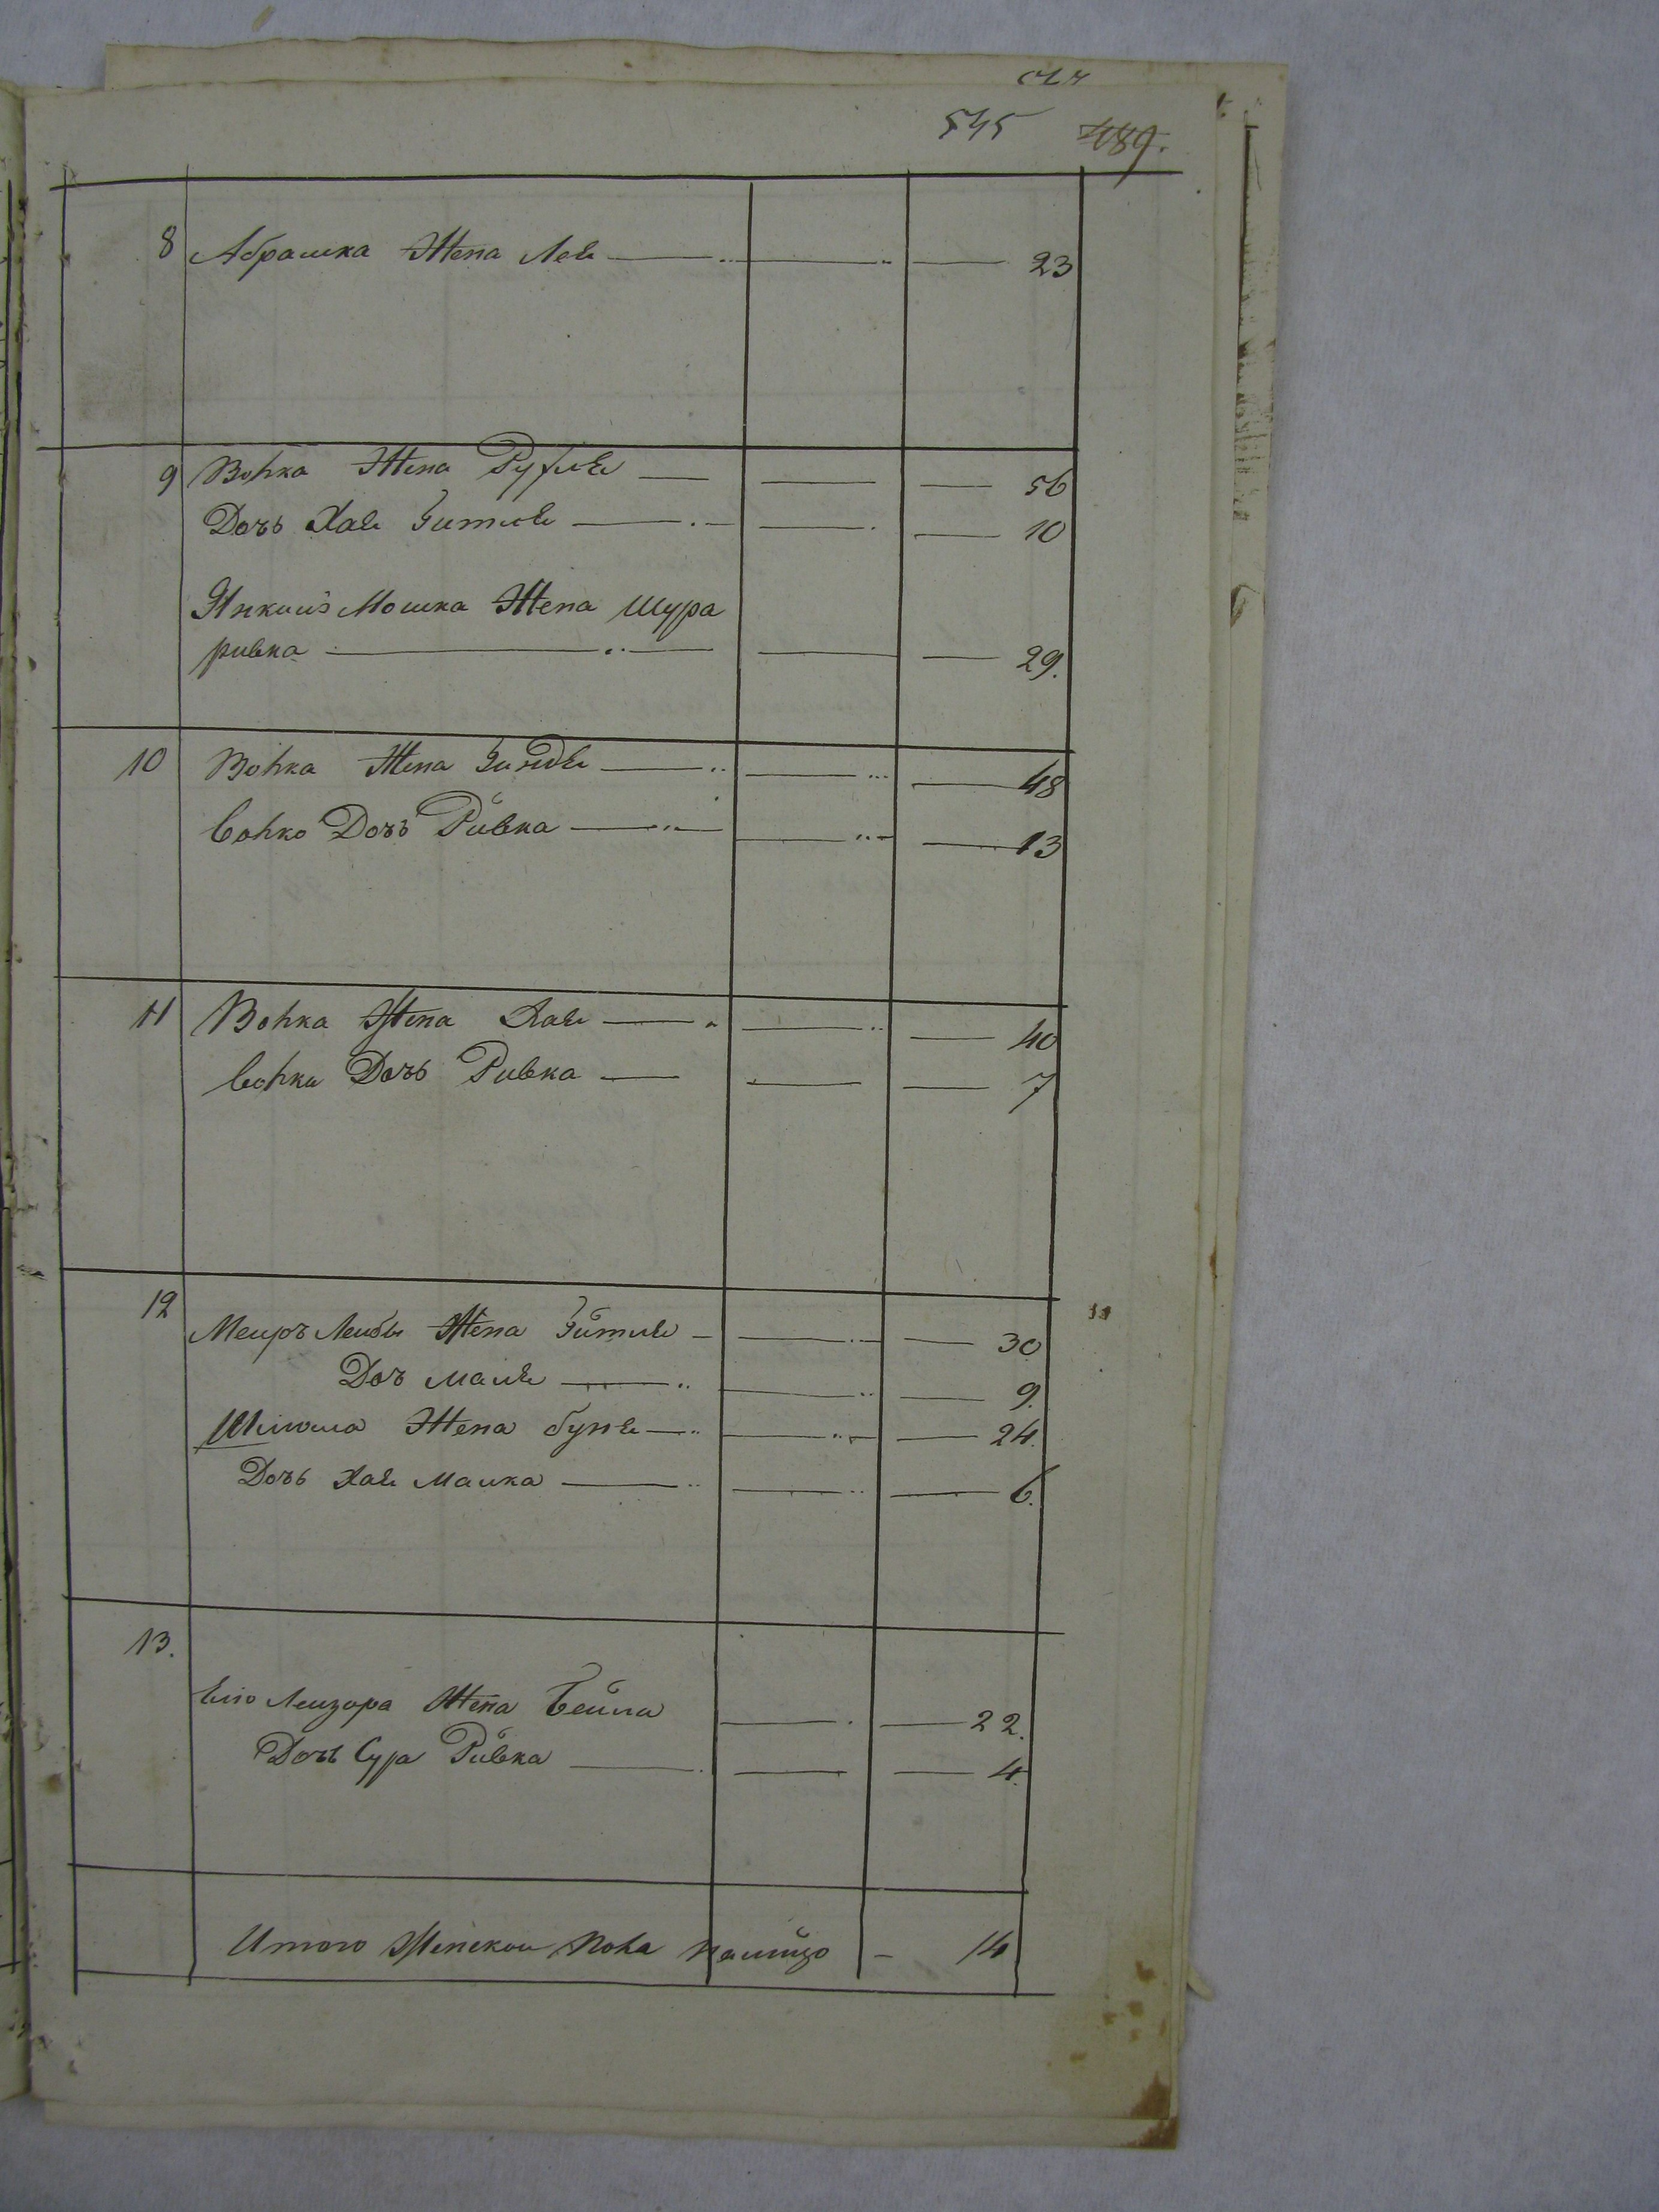 545 489.
8 Абрамка Жена Леѣ 23
9 Вопка Жена Руфлѣ 56
Дочь Хаѣ Гитлѣ 10
Янкиш Мошка Жена Шура
ривка 29.
10 Вопка Жена 48
Вопко Дочь Ривка 13
11 Вопка Жена Хаѣ 40
Вопки Дочь Ривка 7
12 Меиръ Леибы Жена Гитлѣ 30
Доч Малѣ 9.
Жена бунѣ 24.
Дочь Хаѣ Малка 6.
13.
Ено Леизора Жена Беила 22.
Дочь Сура Ривка 4.
Итого Женскои Пола налицо 14